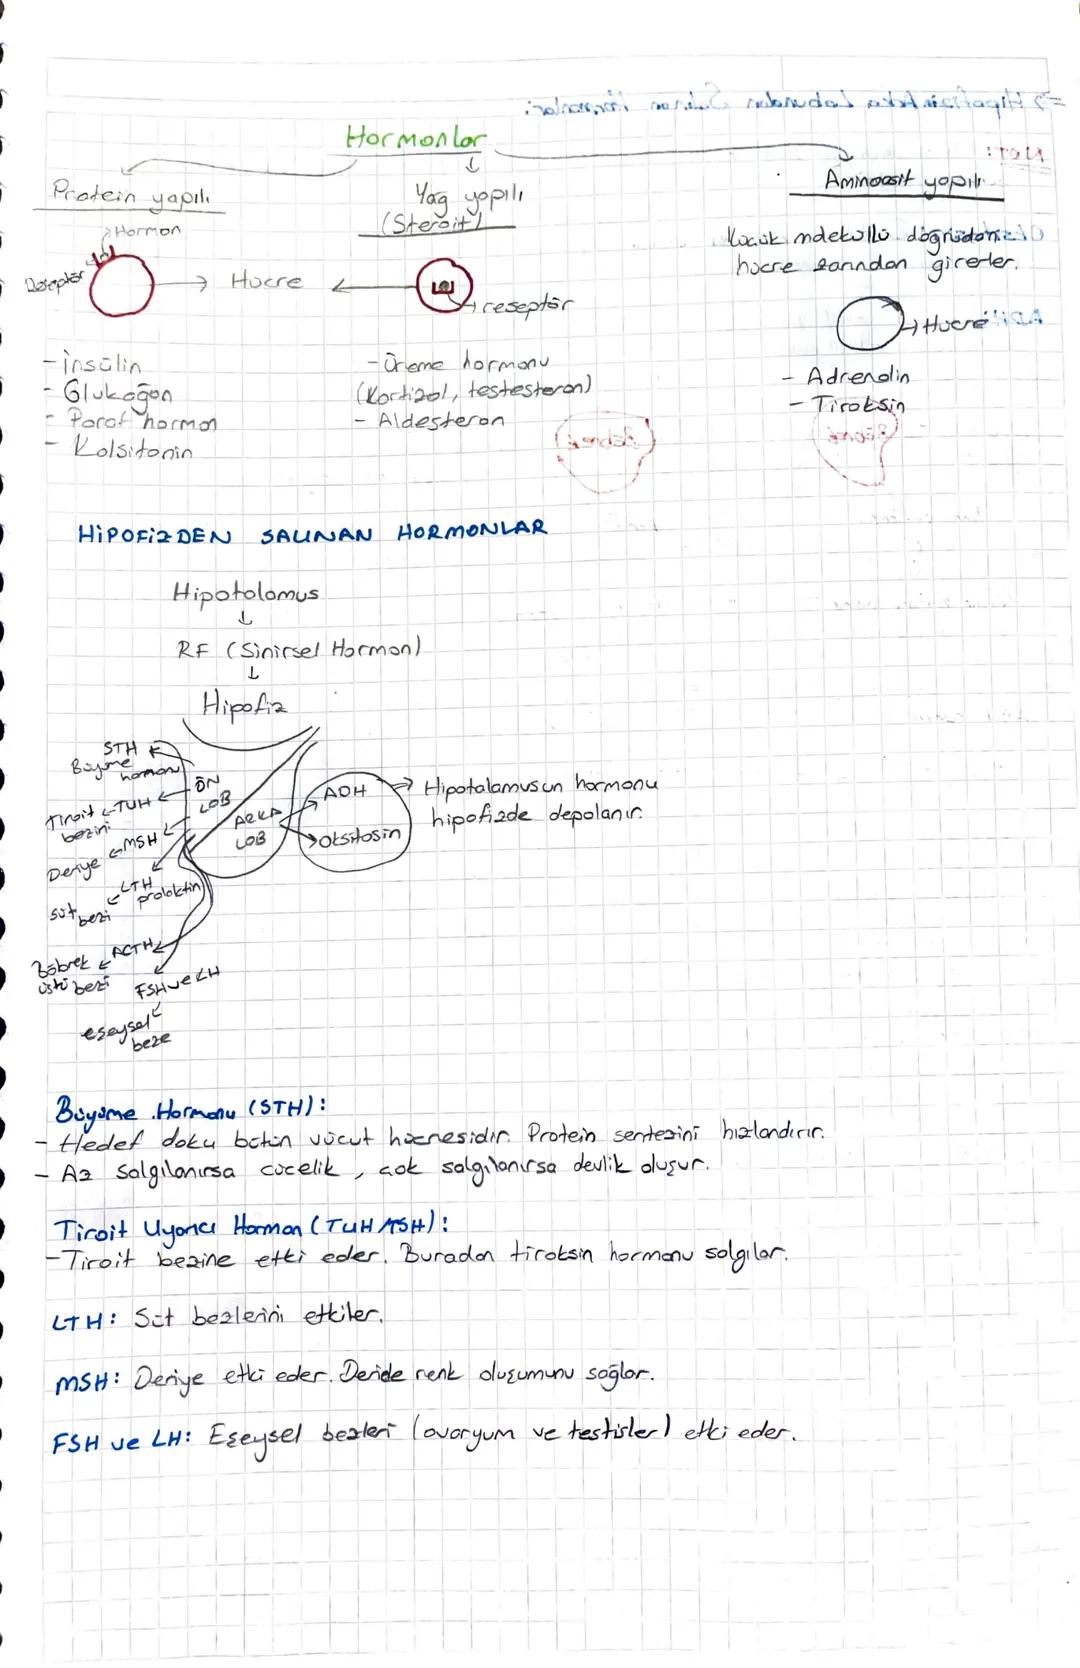 Hormonlar
Protein yapılı
Hormon
Reseptör
Hücre
- İnsülin
- Glukagon
- Parat hormon
- Kalsitonin
Yağ yapılı
(Steroit)
reseptör
- Üreme hormonu
(Kortizol, testesteron)
- Aldesteron
Aminoasit yapılı
Küçük moleküllü doğrudan
hücre zarından girerler.
Hücre
- Adrenalin
- Tiroksin
HİPOFİZDEN SALINAN HORMONLAR
Hipotalamus
RF (Sinirsel Hormon)
Hipofiz
ÖN
LOB
STH
Büyüme
hormonu
TUH
Tiroit
bezini
MSH
Deriye
LTH
prolaktin
süt bezi
ACTH
Böbrek
üstü bezi
FSH ve LH
eşeysel
beze
ARKA
LOB
ADH
Oksitosin
Hipotalamusun hormonu
hipofizde depolanır.
Büyüme Hormonu (STH):
- Hedef doku bütün vücut hücresidir. Protein sentezini hızlandırır.
- Az salgılanırsa cücelik, çok salgılanırsa devlik oluşur.
Tiroit Uyarıcı Hormon (TUH/TSH):
- Tiroit bezine etki eder. Buradan tiroksin hormonu salgılar.
LTH: Süt bezlerini etkiler.
MSH: Deriye etki eder. Deride renk oluşumunu sağlar.
FSH ve LH: Eşeysel bezleri (ovaryum ve testisler) etki eder.